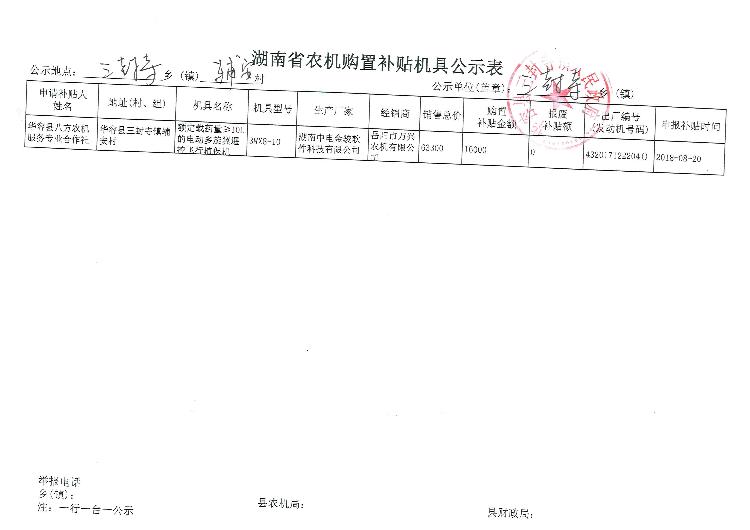 湖南省农机购置补贴机具公示表
公示地点： 三封寺 乡（镇） 辅安 村
公示单位(盖章)： 三封寺 乡（镇）
申请补贴人姓名 地址(村、组) 机具名称 机具型号 生产厂家 经销商 销售总价 购置补贴金额 报废补贴额 出厂编号(发动机号码) 申报补贴时间
华容县八方农机服务专业合作社 华容县三封寺镇辅安村 额定载药量≥10L的电动多旋翼遥控飞行植保机 湖南中电金骏软件科技有限公司 岳阳市万兴农机有限公 62300 16000 0 2018-08-20
举报电话
乡(镇)：
注：一行一台一公示
县农机局：
县财政局：